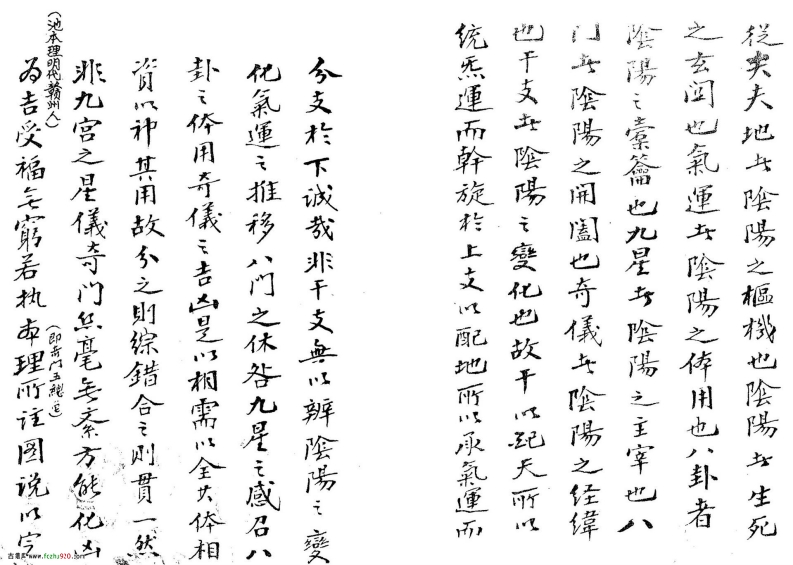 從夫天地者陰陽之樞機也陰陽者生死
之玄關也氣運者陰陽之体用也八卦者
陰陽之橐籥也九星者陰陽之主宰也八
門者陰陽之開闔也奇儀者陰陽之经緯
也干支者陰陽之變化也故干以紀天所以
统炁運而幹旋於上支以配地所以承氣運而
分支於下诚哉非干支無以辨陰陽之變
化氣運之推移八门之休咎九星之感召八
卦之体用奇儀之吉凶是以相需以全其体相
資以神其用故分之则綜錯合之则貫一然
非九宫之星儀奇门丝毫無紊方能化凶
(池本理明代贛州人)
为吉受福無窮若执本理所註图说以字
(即奇门五總龜)
古易库 www.fczhu920.com